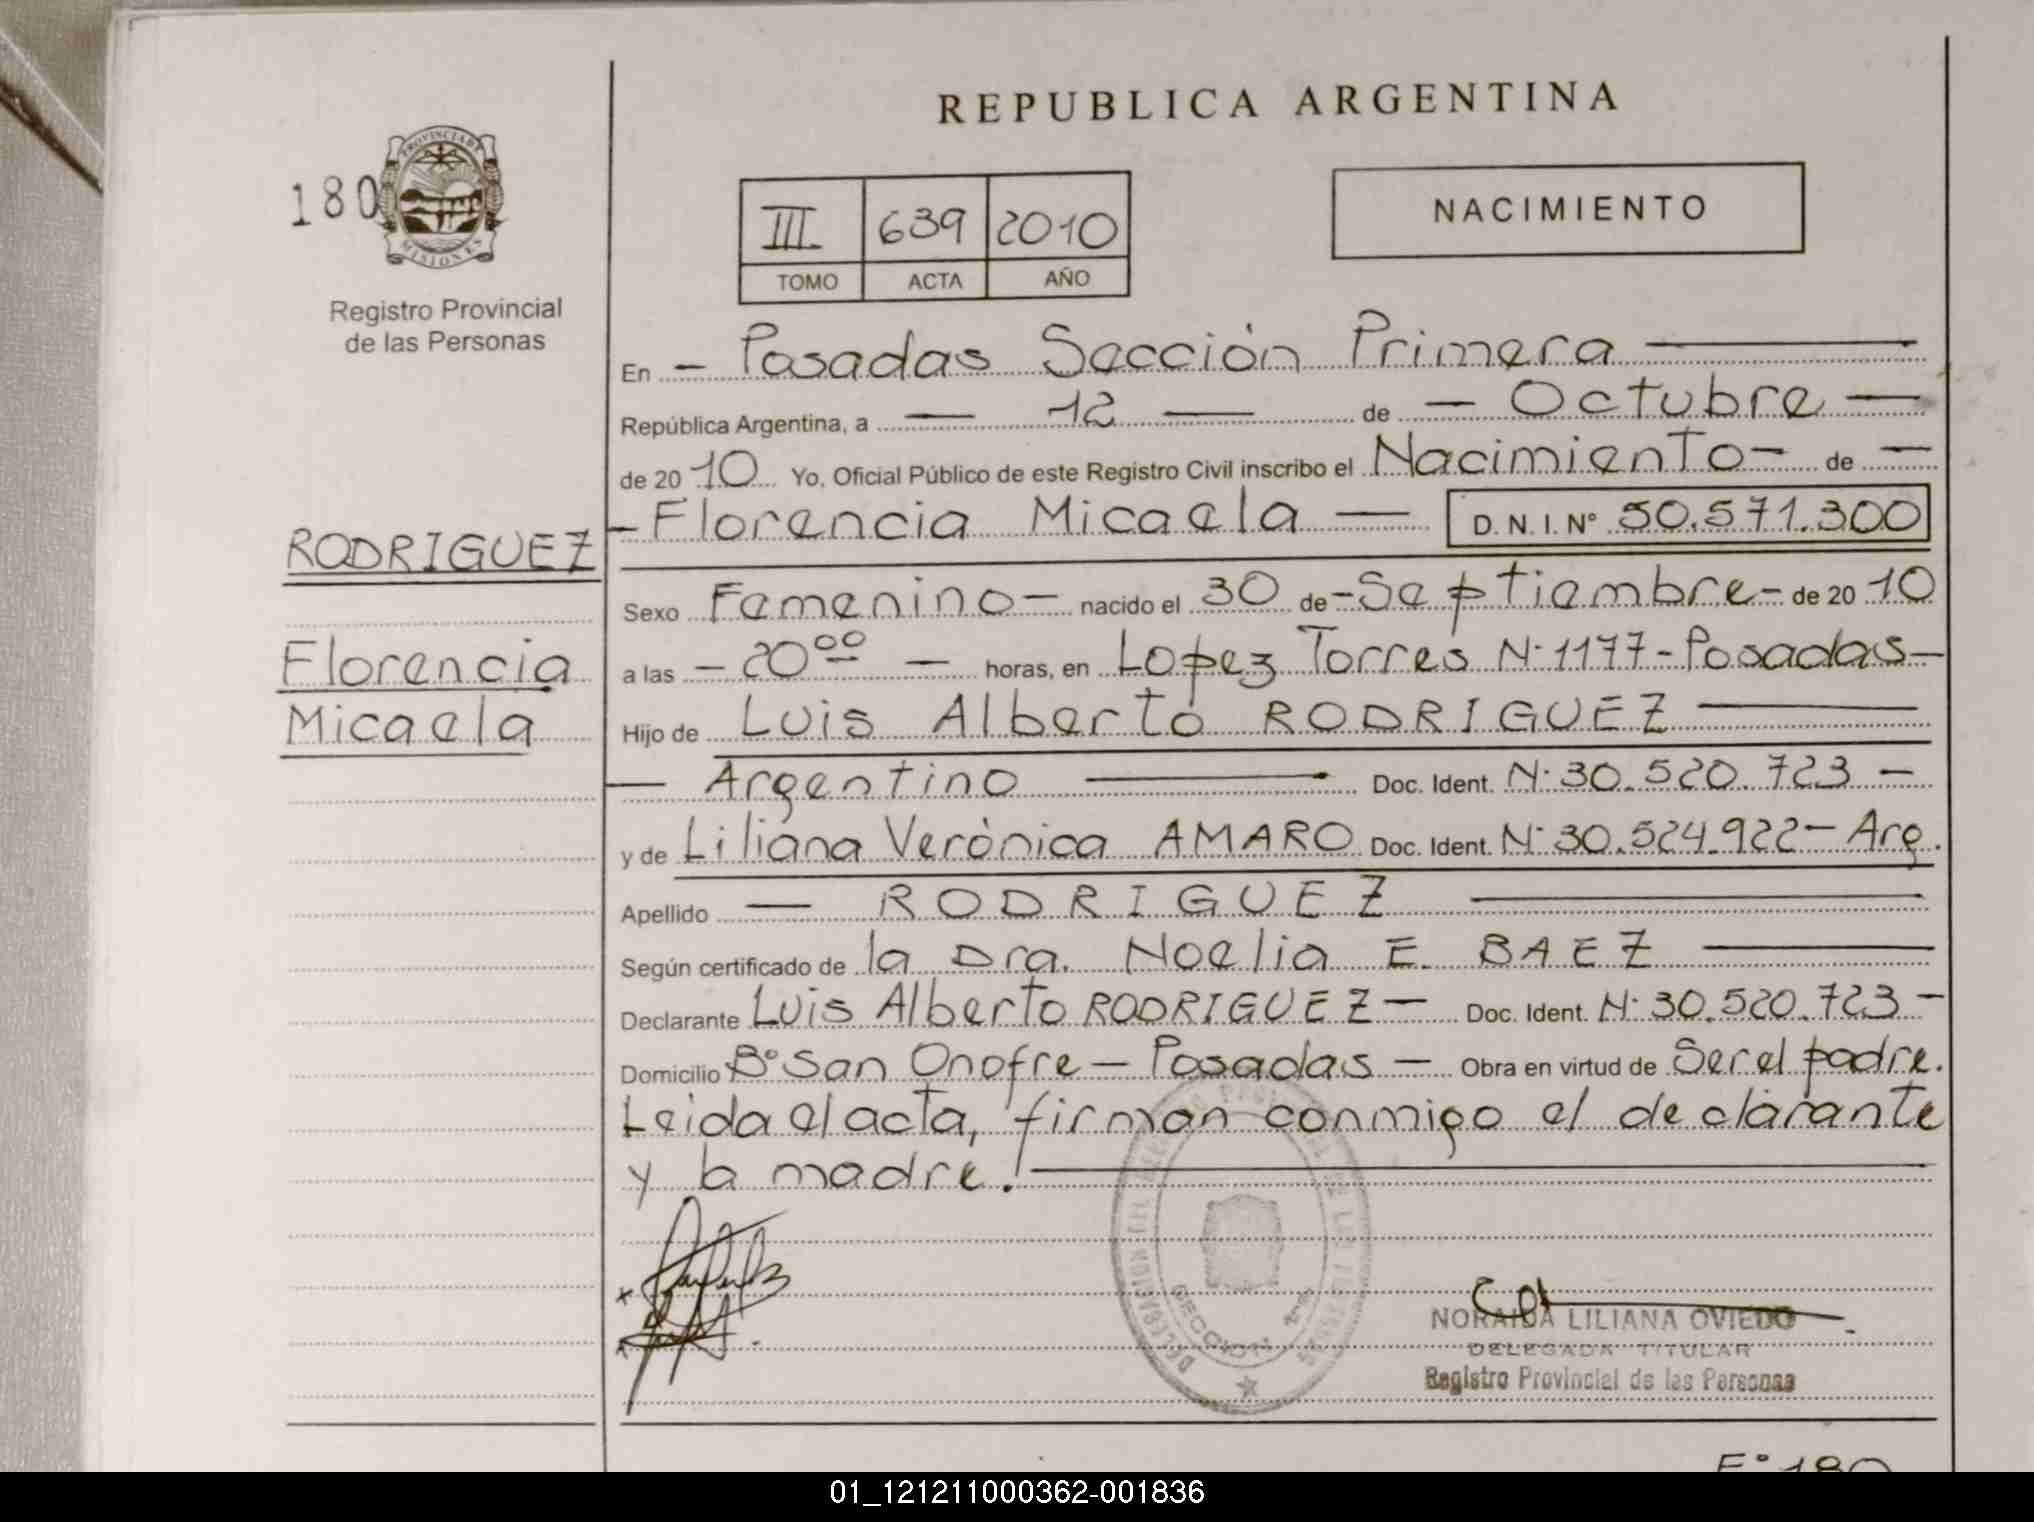 REPUBLICA ARGENTINA
180
PROVINCIA DE
MISIONES
Registro Provincial
de las Personas
III 639 2010
TOMO ACTA AÑO
NACIMIENTO
En - Posadas Sección Primera
República Argentina, a - 12 - de - Octubre -
de 2010 Yo, Oficial Público de este Registro Civil inscribo el Nacimiento - de -
- Florencia Micaela - D. N. I. Nº 50.571.300
RODRIGUEZ
Florencia
Micaela
Sexo Femenino - nacido el 30 de - Septiembre - de 2010
a las - 20°° - horas, en Lopez Torres Nº 1177 - Posadas -
Hijo de Luis Alberto RODRIGUEZ
- Argentino - Doc. Ident. Nº 30.520.723 -
y de Liliana Verónica AMARO Doc. Ident. Nº 30.524.922 - Arg.
Apellido - RODRIGUEZ
Según certificado de la Dra. Noelia E. BAEZ
Declarante Luis Alberto RODRIGUEZ - Doc. Ident. Nº 30.520.723 -
Domicilio Bº San Onofre - Posadas - Obra en virtud de Ser el padre.
Leida el acta, firman conmigo el declarante
y la madre.
NORAIDA LILIANA OVIEDO
DELEGADA TITULAR
Registro Provincial de las Personas
Fº 180
01_121211000362-001836